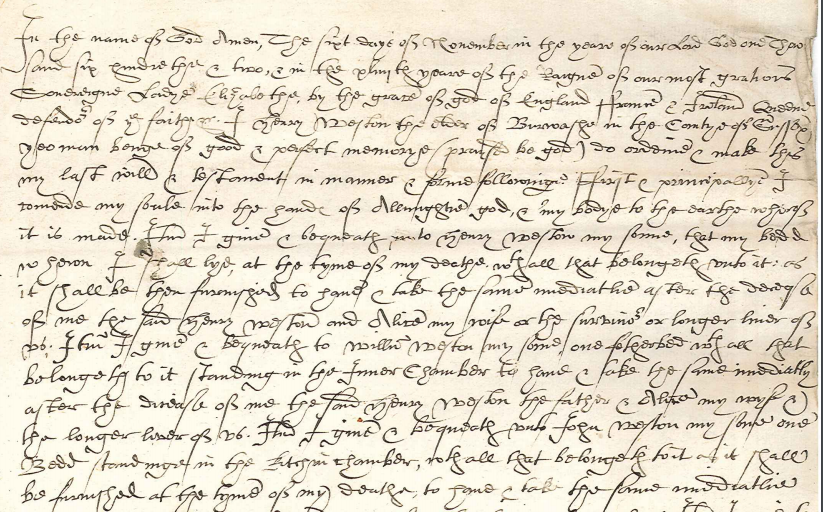 In the name of God Amen, The sixt daye of November in the yeare of our Lord God one Thou
sand six hundrethe & two, & in the xliiijth yeare of the Raigne of our most gratious
Sovereigne Ladye Elizabethe, by the grace of god of England Fraunce & Ireland Queene
defendor of ye faith &c. I Henry Weston the elder of Burwashe in the Countye of Sussex
yeoman beinge of good & perfect memorye (praised be god) do ordeine & make this
my last will & testament in manner & forme followinge. First & principallye I
comende my soule into the hands of Allmightie god, & my bodye to the earthe wherof
it is made. Itm I give & bequeath unto Henry Weston my sonne, that my bedd
wherin I shall lye, at the tyme of my deathe wth all that belongeth unto it: as
it shall be then furnished to have & take the same imediatlie after the decease
of me the said Henry Weston and Alice my wife or the survivor or longer liver of
us. Itm I give & bequeath to Willm Weston my sonne one fetherbed wth all that
belongeth to it standing in the Inner Chamber to have & take the same imediatly
after the decease of me the said Henry Weston the father & Alice my wyfe &
the longer lever of us. Itm I give & bequeath unto John Weston my sonne one
Bedd standinge in the Kitchin chamber, wth all that belongeth to it as it shall
be furnished at the tyme of my deathe, to have & take the same imediatlie